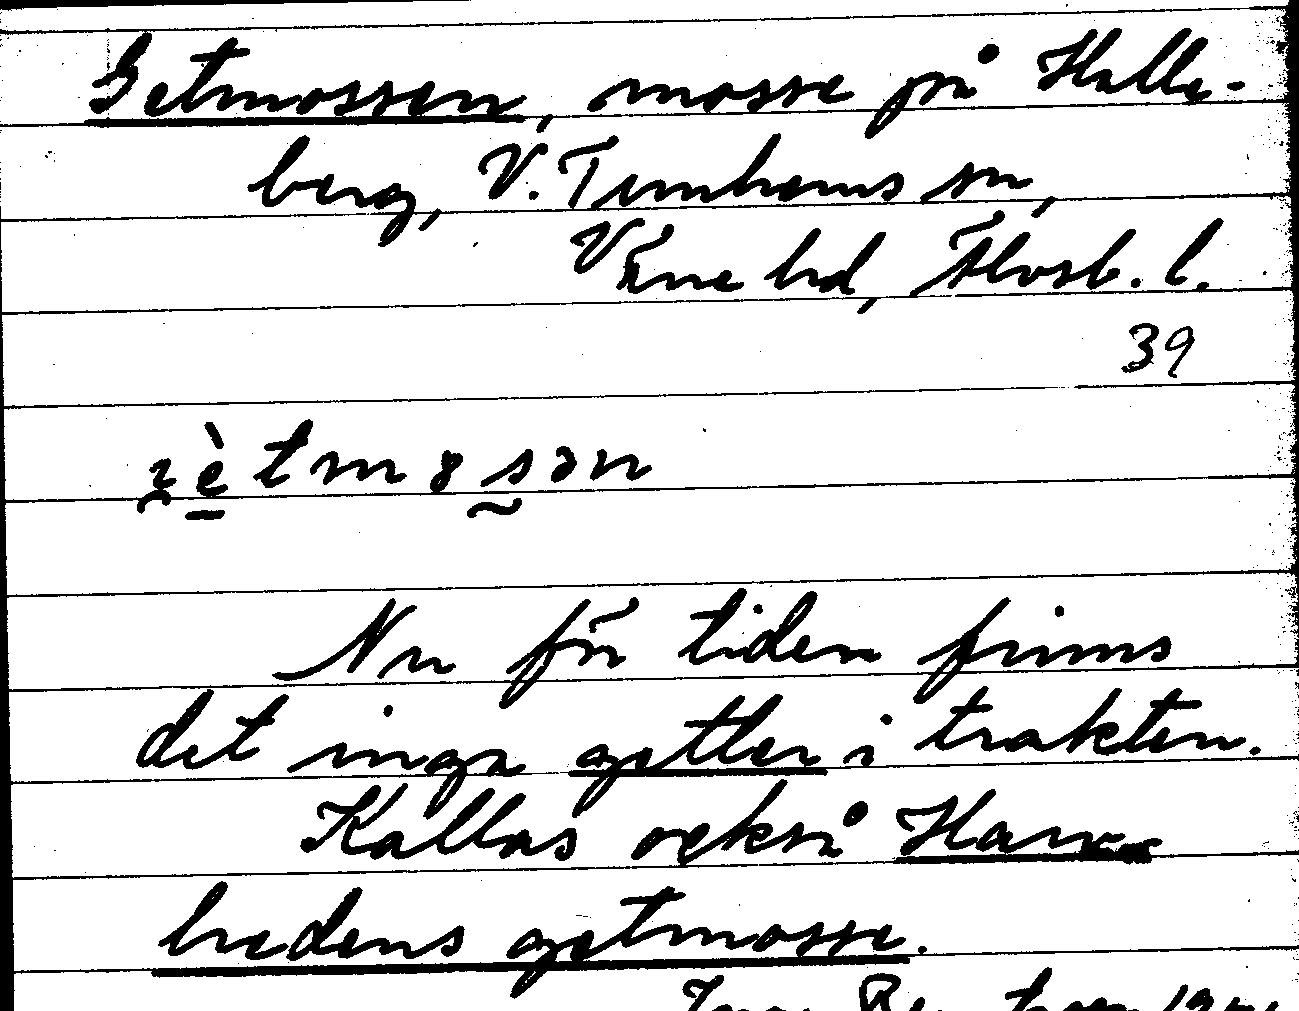 Getmossen, mosse på Halle-
berg, V. Tunhems sn,
Väne hd, Älvsb. l.
39
Nu för tiden finns
det inga getter i trakten.
Kallas också
hedens getmosse.